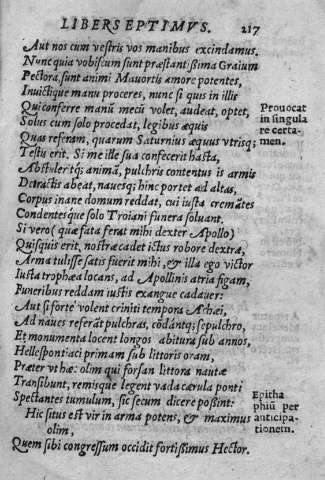 LIBER SEPTIMVS. 217
Aut nos cum vestris vos manibus excindamus.
Nunc quia vobiscum sunt præstantißima Graium
Pectora, sunt animi Mauortis amore potentes,
Inuictique manu proceres, nunc si quis in illis
Qui conferre manũ mecũ volet, audeat, optet,
Solus cum solo procedat, legibus æquis
Prouocat
in singula
re certa-
men.
Quas referam, quarum Saturnius æquus vtrisq;
Testis erit. Si me ille sua confecerit hasta,
Abstuleritq; animã, pulchris contentus is armis
Detractis abeat, nauesq; hinc portet ad altas,
Corpus inane domum reddat, cui iusta cremãtes
Condentesque solo Troiani funera soluant.
Si vero (quæ fata ferat mihi dexter Apollo)
Quisquis erit, nostræ cadet ictus robore dextræ,
Arma tulisse satis fuerit mihi, & illa ego victor
Iusta trophæa locans, ad Apollinis atria figam,
Funeribus reddam iustis exangue cadauer:
Aut si forte volent triniti tempora Achæi,
Ad naues referãt pulchras, cõdantq; sepulchro,
Et monumenta locent longos abitura sub annos,
Hellespontiaci primam sub littoris oram,
Præter vt hæc olim qui forsan littora nautæ
Transibunt, remisque legent vada cærula ponti
Spectantes tumulum, sic secum dicere poßint:
Hic situs est vir in arma potens, & maximus
olim,
Quem sibi congressum occidit fortißimus Hector.
Epitha
phiũ per
anticipa-
tionem.